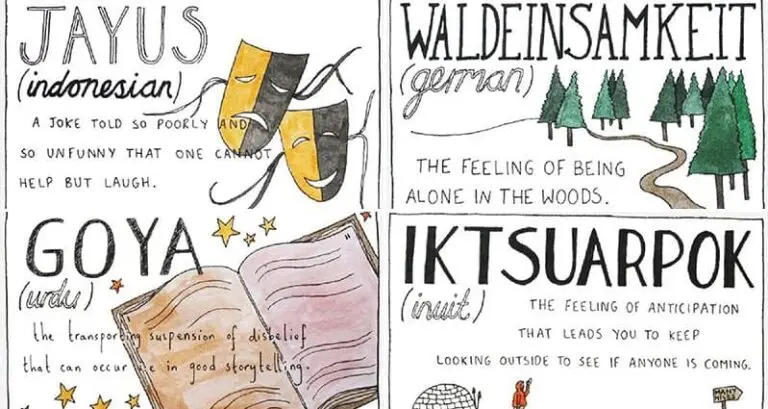 JAYUS
(indonesian)
A JOKE TOLD SO POORLY AND
SO UNFUNNY THAT ONE CANNOT
HELP BUT LAUGH.
WALDEINSAMKEIT
(german)
THE FEELING OF BEING
ALONE IN THE WOODS.
GOYA
(urdu)
the transporting suspension of disbelief
that can occur in good storytelling.
IKTSUARPOK
(inuit)
THE FEELING OF ANTICIPATION
THAT LEADS YOU TO KEEP
LOOKING OUTSIDE TO SEE IF ANYONE IS COMING.
MANY
MILES